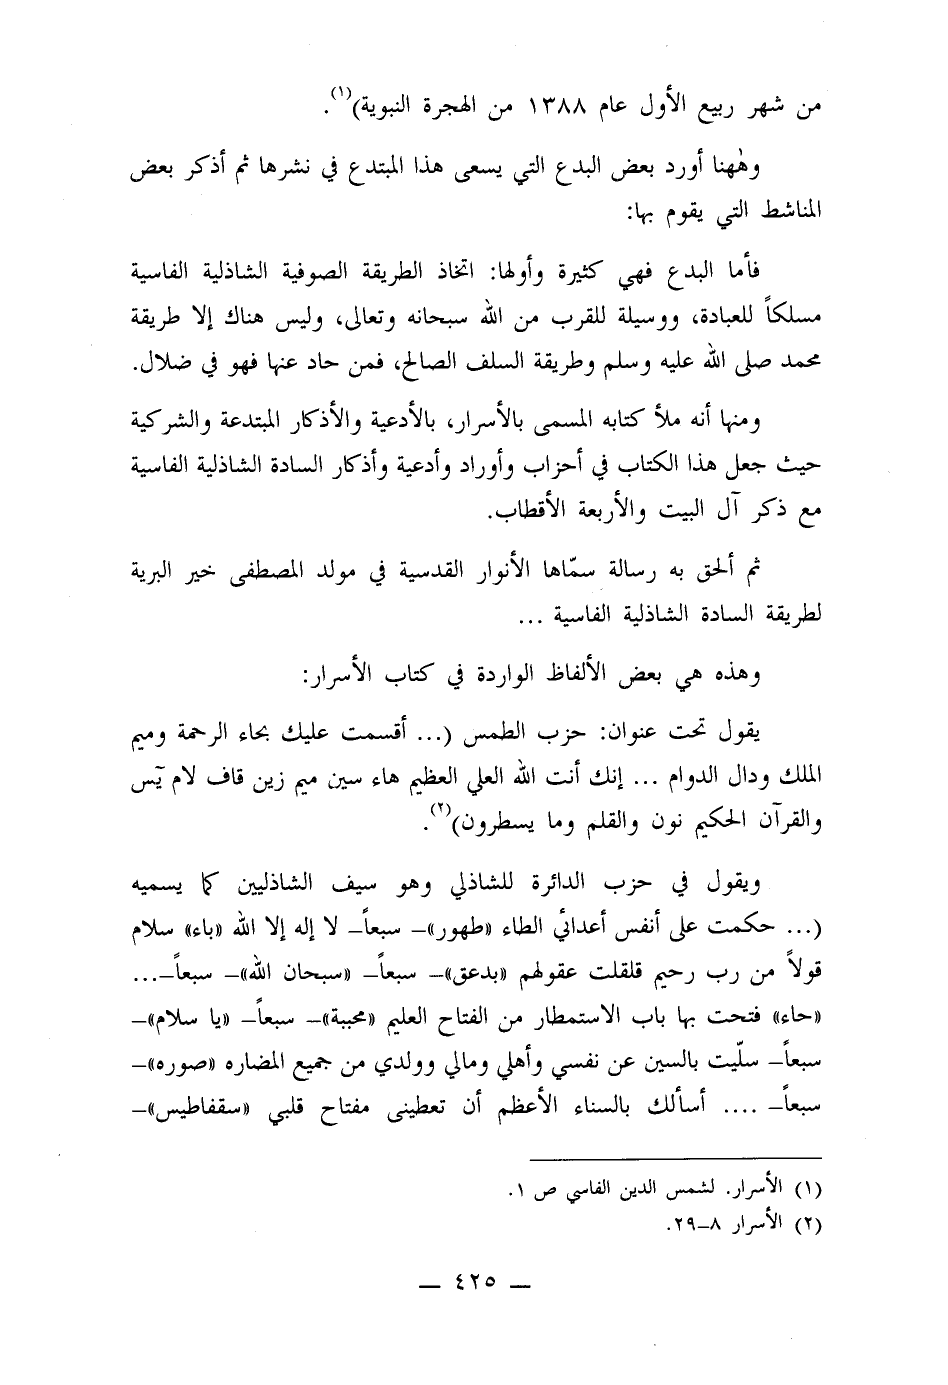 من شهر ربيع الأول عام ١٣٨٨ من الهجرة النبوية)(١).
وهٰهنا أورد بعض البدع التي يسعى هذا المبتدع في نشرها ثم أذكر بعض
المناشط التي يقوم بها:
فأما البدع فهي كثيرة وأولها: اتخاذ الطريقة الصوفية الشاذلية الفاسية
مسلكاً للعبادة، ووسيلة للقرب من الله سبحانه وتعالى، وليس هناك إلا طريقة
محمد صلى الله عليه وسلم وطريقة السلف الصالح، فمن حاد عنها فهو في ضلال.
ومنها أنه ملأ كتابه المسمى بالأسرار، بالأدعية والأذكار المبتدعة والشركية
حيث جعل هذا الكتاب في أحزاب وأوراد وأدعية وأذكار السادة الشاذلية الفاسية
مع ذكر آل البيت والأربعة الأقطاب.
ثم ألحق به رسالة سمّاها الأنوار القدسية في مولد المصطفى خير البرية
لطريقة السادة الشاذلية الفاسية ...
وهذه هي بعض الألفاظ الواردة في كتاب الأسرار:
يقول تحت عنوان: حزب الطمس (... أقسمت عليك بحاء الرحمة وميم
الملك ودال الدوام ... إنك أنت الله العلي العظيم هاء سين ميم زين قاف لام يٓس
والقرآن الحكيم نون والقلم وما يسطرون)(٢).
ويقول في حزب الدائرة للشاذلي وهو سيف الشاذليين كما يسميه
(... حكمت على أنفس أعدائي الطاء «طهور»– سبعاً– لا إله إلا الله «باء» سلام
قولاً من رب رحيم قلقلت عقولهم «بدعق»– سبعاً– «سبحان الله»– سبعاً–...
«حاء» فتحت بها باب الاستمطار من الفتاح العليم «محببة»– سبعاً– «يا سلام»–
سبعاً– سلّيت بالسين عن نفسي وأهلي ومالي وولدي من جميع المضاره «صوره»–
سبعاً– .... أسألك بالسناء الأعظم أن تعطينى مفتاح قلبي «سقفاطيس»–
(١) الأسرار. لشمس الدين الفاسي ص ١.
(٢) الأسرار ٨–٢٩.
— ٤٢٥ —